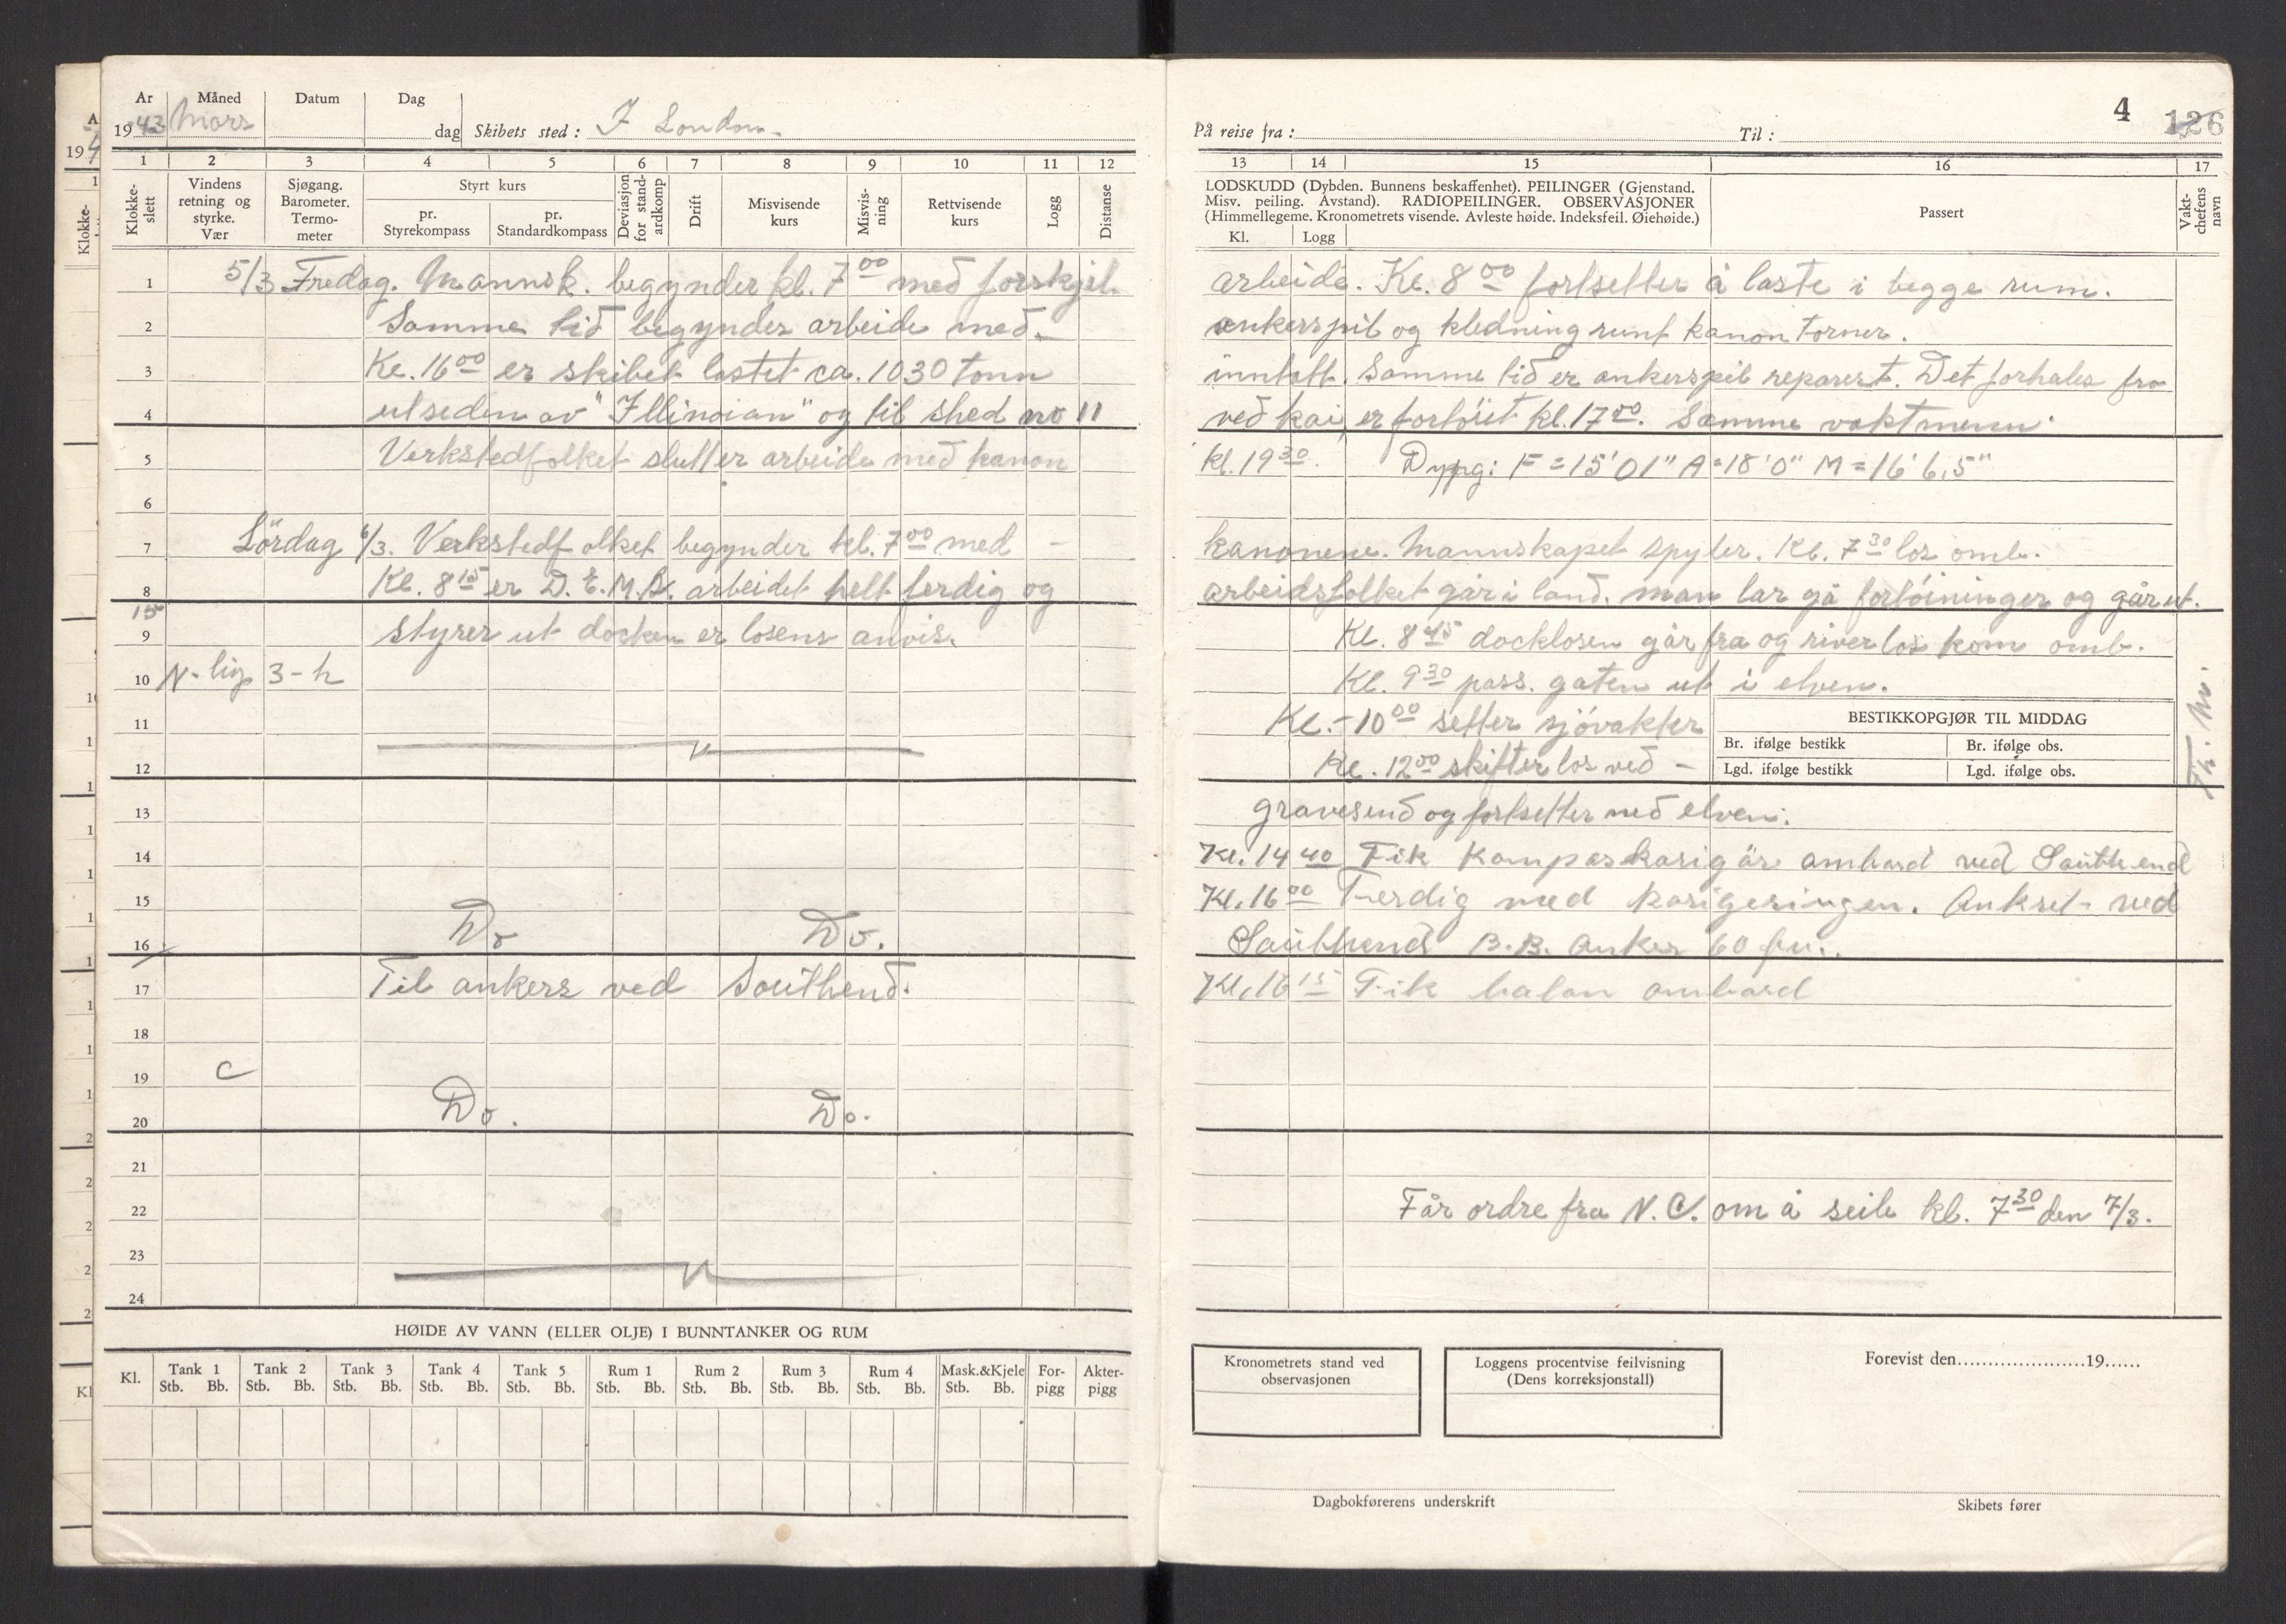 Ar Måned Datum Dag
1943 Mars dag Skibets sted: I London.
1 2 3 4 5 6 7 8 9 10 11 12
Klokke-slett
Vindens retning og styrke. Vær
Sjøgang. Barometer. Termo-meter
Styrt kurs
pr. Styrekompass
pr. Standardkompass
Deviasjon for stand-ardkomp
Drift
Misvisende kurs
Misvis-ning
Rettvisende kurs
Logg
Distanse
1 5/3 Fredag. Mannsk. begynder kl. 7 00 med forskjel.
2 Samme tid begynder arbeide med
3 Kl. 16 00 er skibet lastet ca. 1030 tonn
4 utsiden av "Illinoian" og til shed no 11
5 Verkstedfolket slutter arbeide med kanon
6
7 Lördag 6/3. Verkstedfolket begynder kl. 7 00 med -
8 Kl. 8 15 er D.E.M.S. arbeidet helt ferdig og
15
9 styrer ut docken er losens anvis.
10 N-lig 3-h
11
12
13
14
15
16 Do Do.
17 Til ankers ved Southend.
18
19 C
20 Do. Do.
21
22
23
24
HØIDE AV VANN (ELLER OLJE) I BUNNTANKER OG RUM
Kl. Tank 1 Tank 2 Tank 3 Tank 4 Tank 5 Rum 1 Rum 2 Rum 3 Rum 4 Mask.&Kjele For-pigg Akter-pigg
Stb. Bb. Stb. Bb. Stb. Bb. Stb. Bb. Stb. Bb. Stb. Bb. Stb. Bb. Stb. Bb. Stb. Bb. Stb. Bb.
4 126
På reise fra: Til:
13 14 15 16 17
LODSKUDD (Dybden. Bunnens beskaffenhet). PEILINGER (Gjenstand.
Misv. peiling. Avstand). RADIOPEILINGER. OBSERVASJONER
(Himmellegeme. Kronometrets visende. Avleste høide. Indeksfeil. Øiehøide.)
Kl. Logg
Passert
Vakt-chefens navn
arbeide. Kl. 8 00 fortsetter å laste i begge rum.
ankerspil og kledning runt kanon torner.
inntatt. Samme tid er ankerspil reparert. Det forhales fra
ved kai, er fortöiet kl. 17 00. Samme vaktmenn
kl. 19 30. Dypg: F = 15' 01" A = 18' 0" M = 16' 6,5"
kanonene. Mannskapet spyler. Kl. 7 30 los omb.
arbeidsfolket går i land. man lar gå fortöininger og går ut.
Kl. 8 45 docklosen går fra og river los kom omb.
Kl. 9 30 pass. gaten ut i elven.
Kl. - 10 00 setter sjövakter
Kl. 12 00 skifter los ved -
BESTIKKOPGJØR TIL MIDDAG
Br. ifølge bestikk Br. ifølge obs.
Lgd. ifølge bestikk Lgd. ifølge obs.
gravesend og fortsetter ned elven.
Kl. 14 40 Fik Kompaskorigör ombord ved Southend
Kl. 16 00 Færdig med korigeringen. Ankret ved
Southend B.B. Anker 60 fv.
Kl. 16 15 Fik balon ombord
Får ordre fra N.C. om å seile kl. 7 30 den 7/3.
Kronometrets stand ved observasjonen
Loggens procentvise feilvisning
(Dens korreksjonstall)
Forevist den 19
Dagbokførerens underskrift
Skibets fører